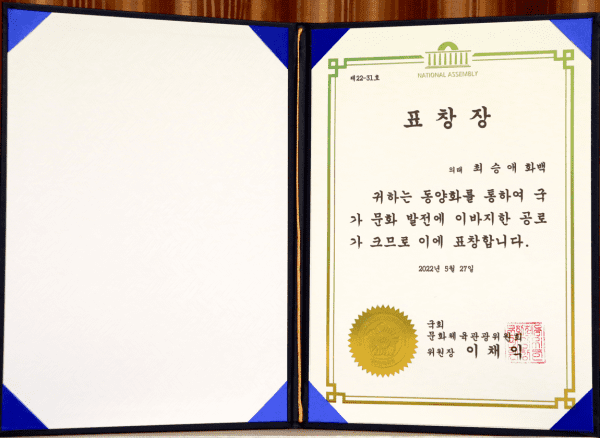 NATIONAL ASSEMBLY
제22-31호
표 창 장
의재 최 승 애 화백
귀하는 동양화를 통하여 국
가 문화 발전에 이바지한 공로
가 크므로 이에 표창합니다.
2022년 5월 27일
국회
문화체육관광위원회
위원장 이 채 익